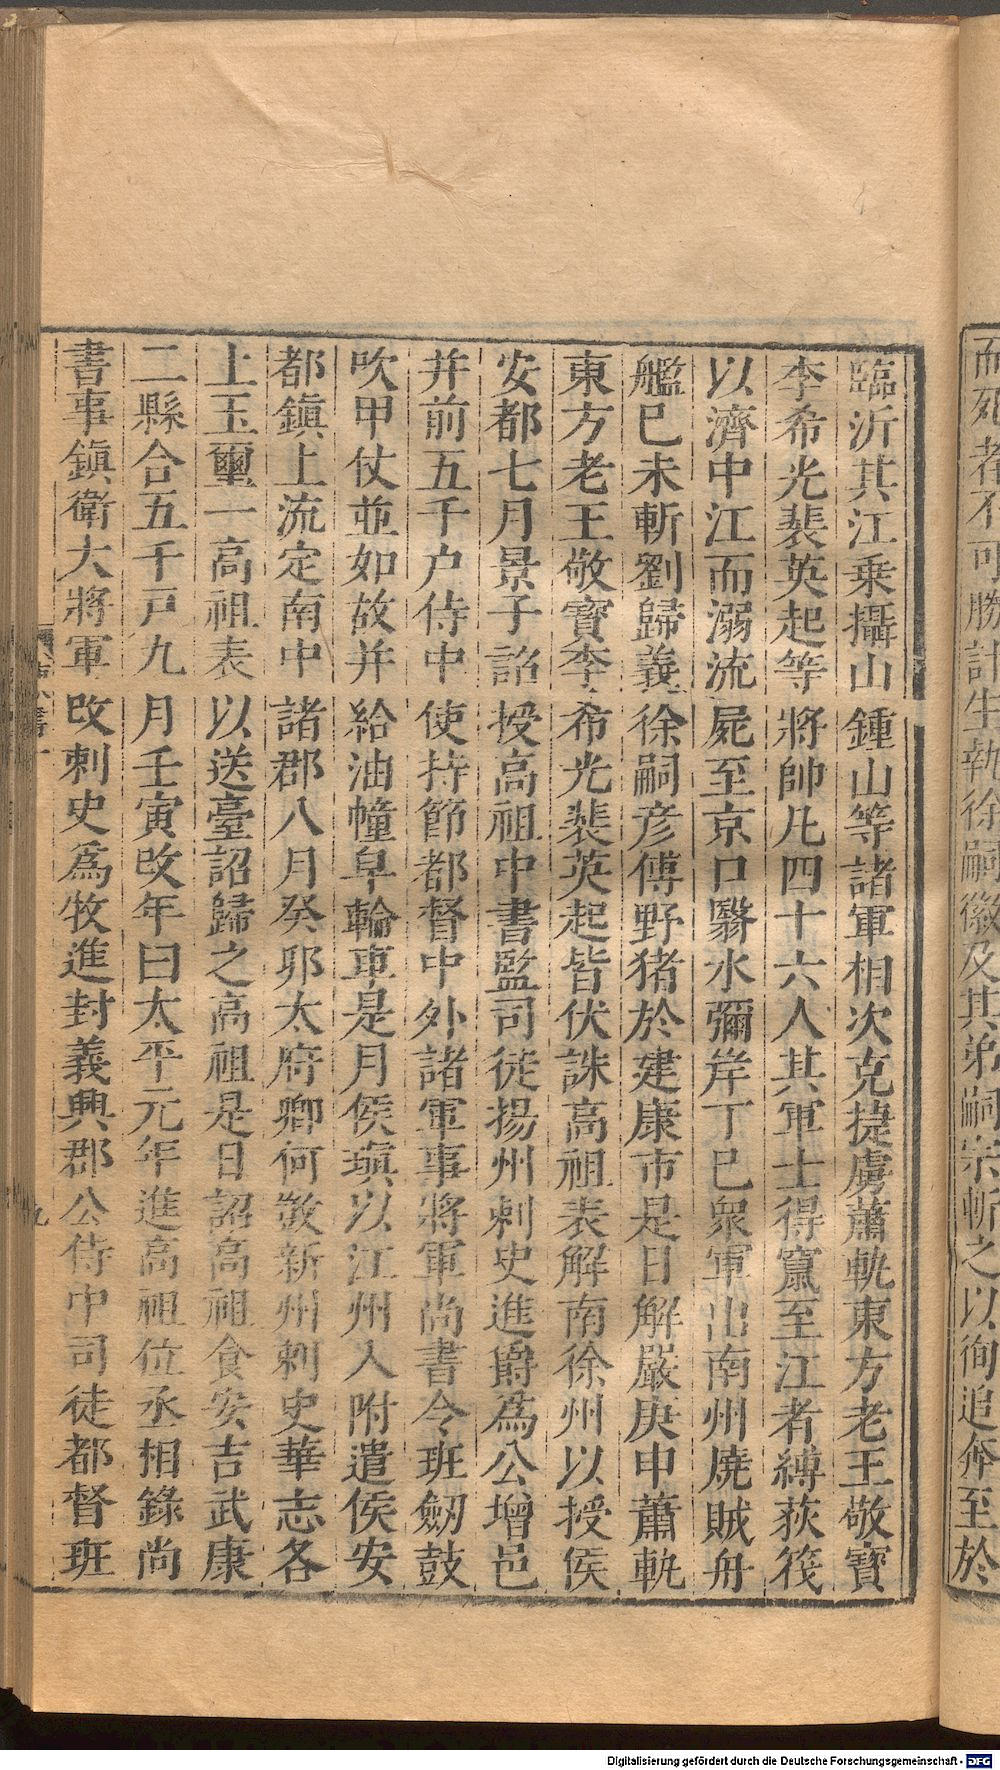 而死者不可勝計生執徐嗣徽及其弟嗣宗斬之以徇追奔至於
臨沂其江乗攝山鍾山等諸軍相次克捷虜蕭軌東方老王敬寶
李希光裴英起等將帥凡四十六人其軍士得竄至江者縛荻筏
以濟中江而溺流屍至京口翳水彌岸丁巳衆軍出南州燒賊舟
艦巳未斬劉歸義徐嗣彦傅野猪於建康市是日解嚴庚申蕭軌
東方老王敬寶李希光裴英起皆伏誅高祖表解南徐州以授侯
安都七月景子詔授高祖中書監司徒揚州刺史進爵爲公增邑
并前五千户侍中使持節都督中外諸軍事將軍尚書令班劒鼓
吹甲仗並如故并給油幢皁輪車是月侯瑱以江州入附遣侯安
都鎮上流定南中諸郡八月癸卯太府卿何敳新州刺史華志各
上玉璽一高祖表以送臺詔歸之高祖是日詔高祖食安吉武康
二縣合五千戸九月壬寅改年曰太平元年進高祖位丞相錄尚
書事鎮衛大將軍改刺史爲牧進封義興郡公侍中司徒都督班
九
Digitalisierung gefördert durch die Deutsche Forschungsgemeinschaft - DFG